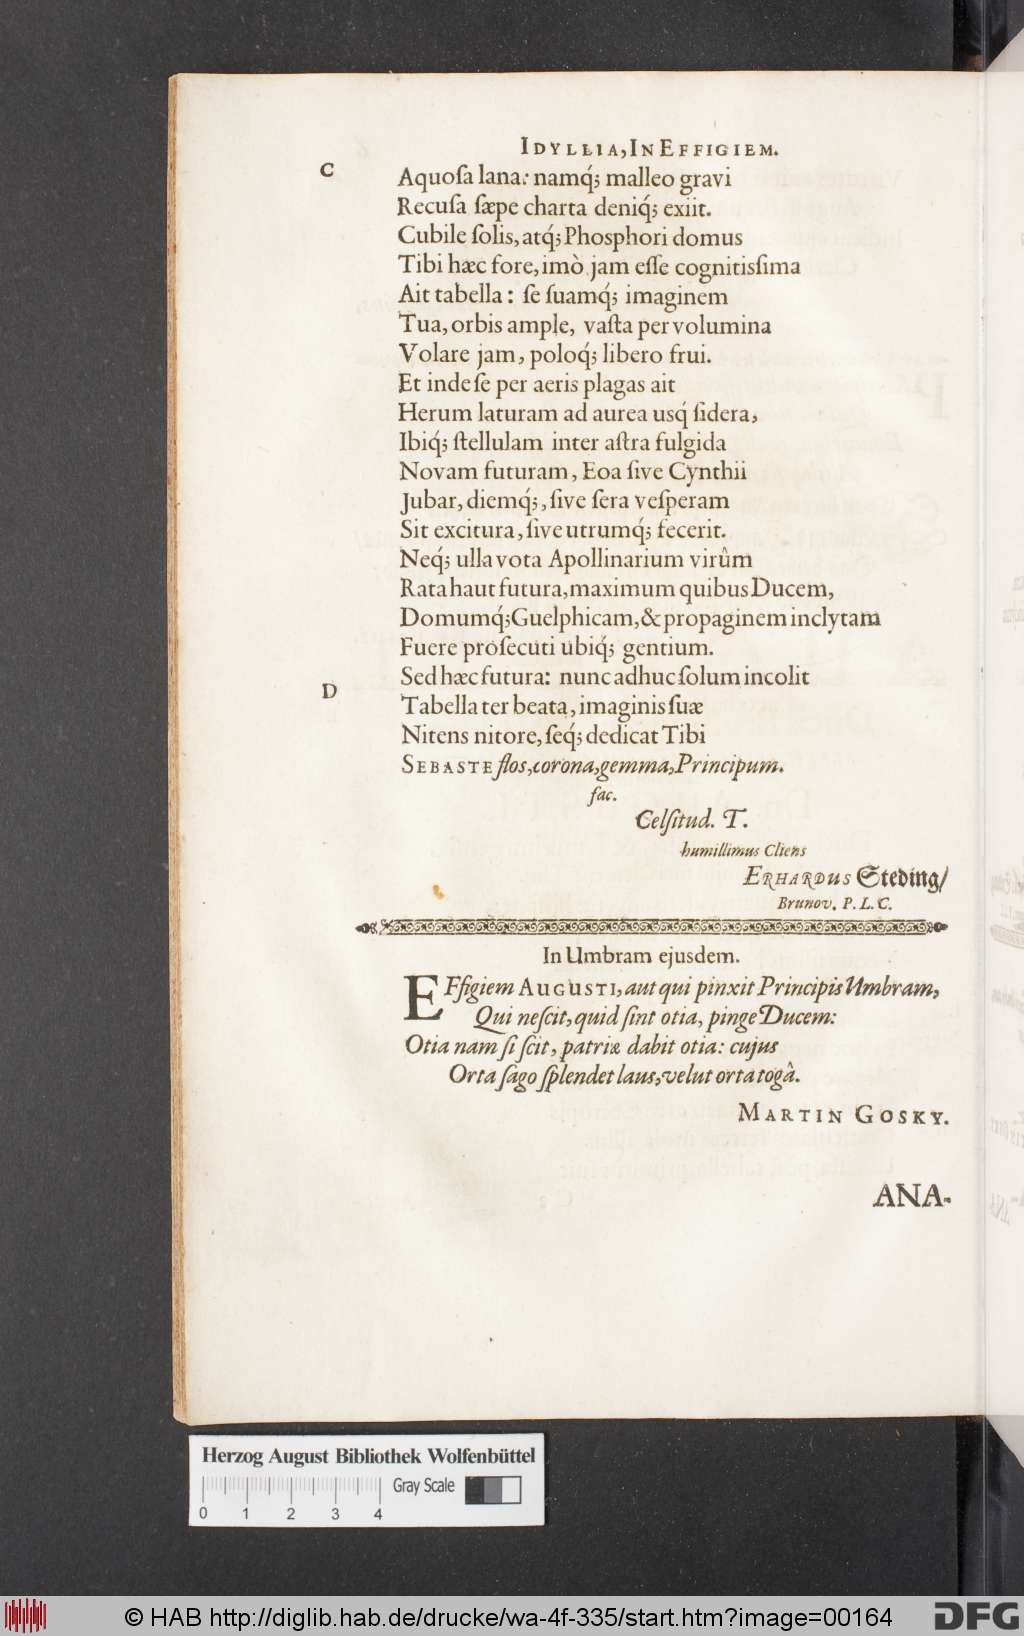 IDYLLIA, IN EFFIGIEM.
C
Aquoſa lana: namq́; malleo gravi
Recuſa ſæpe charta deniq́; exiit.
Cubile ſolis, atq́; Phosphori domus
Tibi hæc fore, imò jam eſſe cognitisſima
Ait tabella: ſe ſuamq́; imaginem
Tua, orbis ample, vaſta per volumina
Volare jam, poloq́; libero frui.
Et inde ſe per aeris plagas ait
Herum laturam ad aurea usq́ ſidera,
Ibiq́; ſtellulam inter aſtra fulgida
Novam futuram, Eoa ſive Cynthii
Jubar, diemq́;, ſive ſera veſperam
Sit excitura, ſive utrumq́; fecerit.
Neq́; ulla vota Apollinarium virûm
Rata haut futura, maximum quibus Ducem,
Domumq́; Guelphicam, & propaginem inclytam
Fuere proſecuti ubiq́; gentium.
Sed hæc futura: nunc adhuc ſolum incolit
D
Tabella ter beata, imaginis ſuæ
Nitens nitore, ſeq́; dedicat Tibi
SEBASTE flos, corona, gemma, Principum.
fac.
Celſitud. T.
humillimus Cliens
ERHARDUS Steding/
Brunov. P. L. C.
In Umbram ejusdem.
EFfigiem AUGUSTI, aut qui pinxit Principis Umbram,
Qui neſcit, quid ſint otia, pinge Ducem:
Otia nam ſi ſcit, patriæ dabit otia: cujus
Orta ſago ſplendet laus, velut orta togâ.
MARTIN GOSKY.
ANA-
Herzog August Bibliothek Wolfenbüttel
Gray Scale
0 1 2 3 4
© HAB http://diglib.hab.de/drucke/wa-4f-335/start.htm?image=00164
DFG